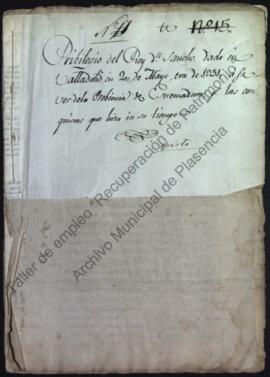 Nº 11 Nº 15
Pribilegio del Rey Dn. Sancho, dado en
Valladolid en 20 de Mayo, era de 1331, a fa
vor de la Probincia de Extremadura y las con
quistas que hizo en su tiempo
Taller de empleo "Recuperación de Patrimonio"
Archivo Municipal de Plasencia